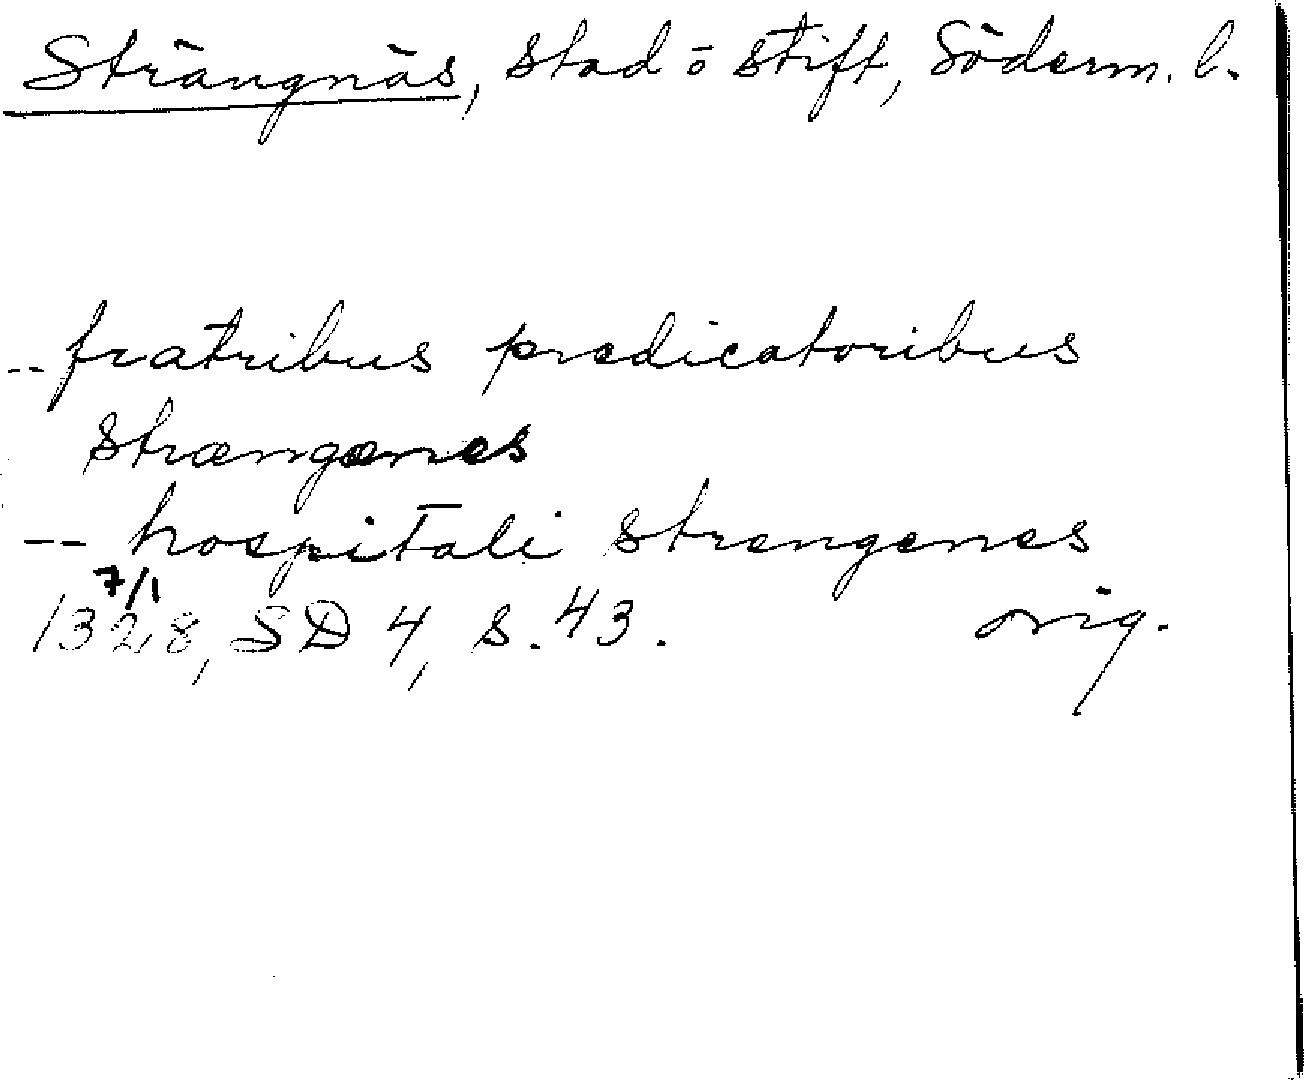 Strängnäs, stad ō stift, Söderm. l.
-- fratribus predicatoribus
strængænes
-- hospitali strengenes
7/1
1328, SD 4, s. 43. orig.